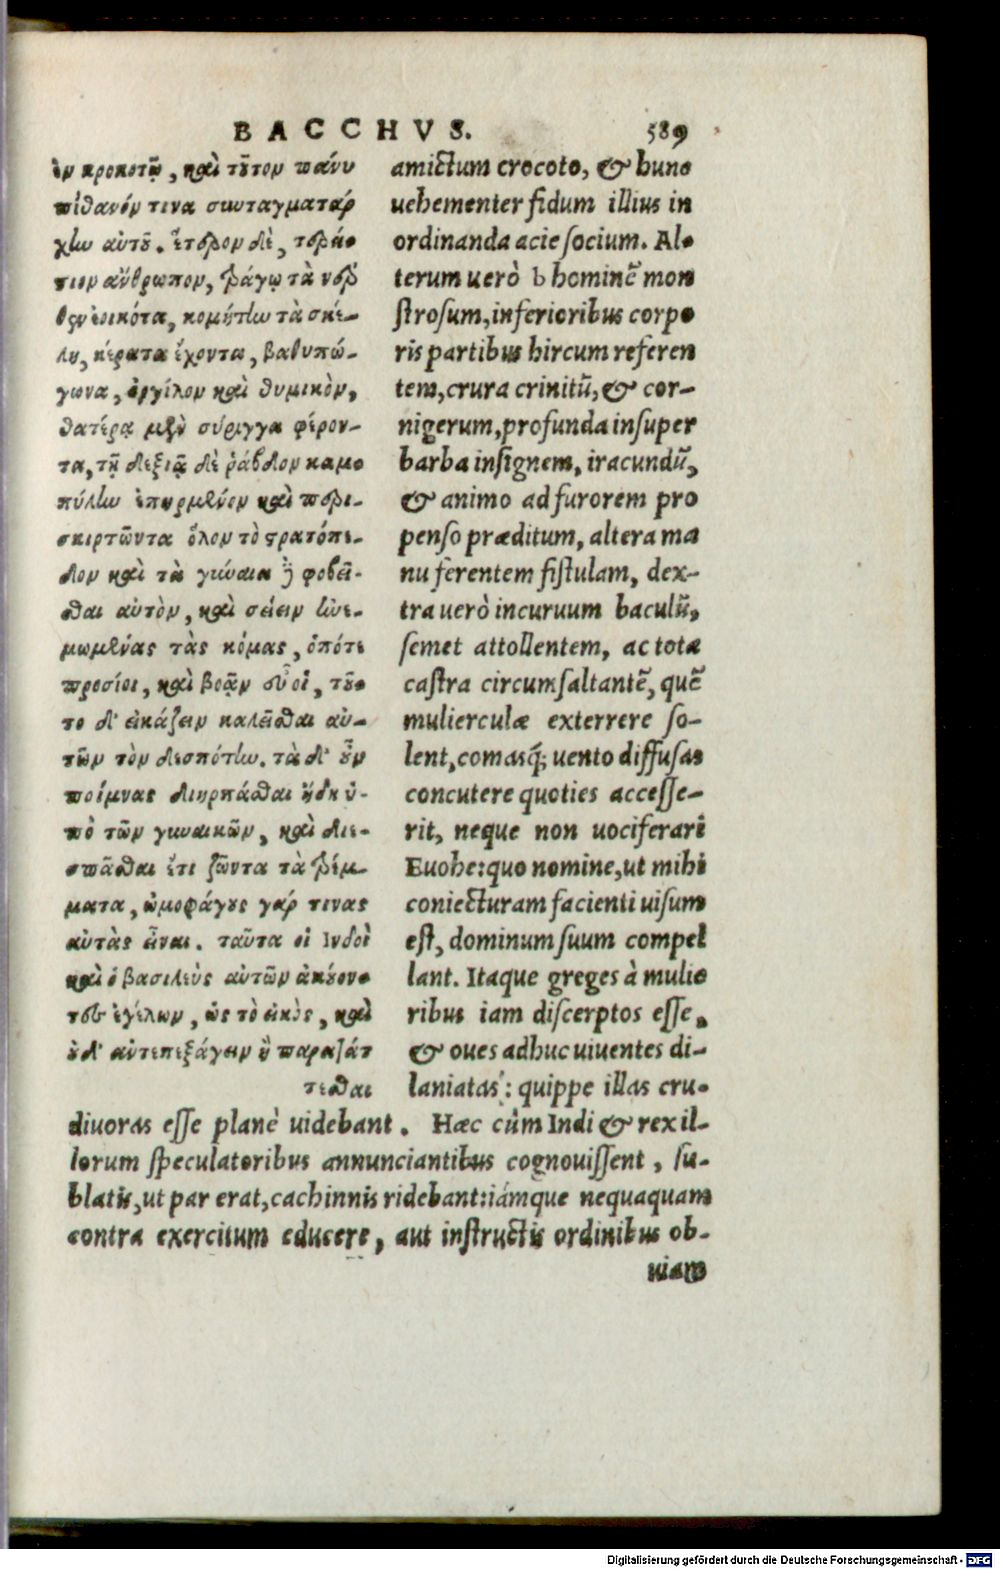 BACCHVS. 589
ἐν κροκοτῷ, καὶ τοῦτον πάνυ
πιθανόν τινα συνταγματάρ
χην αὐτοῦ. ἕτερον δὲ, τερά-
στιον ἄνθρωπον, τράγῳ τὰ νέρ
θεν ἐοικότα, κομήτην τὰ σκέ-
λη, κέρατα ἔχοντα, βαθυπώ-
γωνα, ὀργίλον καὶ θυμικὸν,
θατέρᾳ μὲν σύριγγα φέρον-
τα, τῇ δεξιᾷ δὲ ῥάβδον καμ-
πύλην ἐπῃρμένον καὶ περι-
σκιρτῶντα ὅλον τὸ στρατόπε-
δον καὶ τὰ γύναια ἢ φοβεῖ-
σθαι αὐτὸν, καὶ σείειν ἠνε-
μωμένας τὰς κόμας, ὁπότε
προσίοι, καὶ βοᾷν εὐοῖ, τοῦ-
το δ' εἰκάζειν καλεῖσθαι αὐ-
τῶν τὸν δεσπότην. τὰ δ' οὖν
ποίμνας διηρπάσθαι ἤδη ὑ-
πὸ τῶν γυναικῶν, καὶ διε-
σπᾶσθαι ἔτι ζῶντα τὰ θρέμ-
ματα, ὠμοφάγους γάρ τινας
αὐτὰς εἶναι. ταῦτα οἱ Ινδοὶ
καὶ ὁ βασιλεὺς αὐτῶν ἀκούον-
τες ἐγέλων, ὡς τὸ εἰκὸς, καὶ
οὐδ' ἀντεπεξάγειν ἢ παρατάτ
τεσθαι
amictum crocoto, & hunc
uehementer fidum illius in
ordinanda acie socium. Al-
terum uerò b hominẽ mon
strosum, inferioribus corpo
ris partibus hircum referen
tem, crura crinitũ, & cor-
nigerum, profunda insuper
barba insignem, iracundũ,
& animo ad furorem pro
penso præditum, altera ma
nu ferentem fistulam, dex-
tra uerò incuruum baculũ,
semet attollentem, ac tota
castra circumsaltantẽ, quẽ
mulierculæ exterrere so-
lent, comasq́; uento diffusas
concutere quoties accesse-
rit, neque non uociferari
Euohe: quo nomine, ut mihi
coniecturam facienti uisum
est, dominum suum compel
lant. Itaque greges à mulie
ribus iam discerptos esse,
& oues adhuc uiuentes di-
laniatas: quippe illas cru-
diuoras esse planè uidebant. Hæc cùm Indi & rex il-
lorum speculatoribus annunciantibus cognouissent, su-
blatis, ut par erat, cachinnis ridebant: iámque nequaquam
contra exercitum educere, aut instructis ordinibus ob-
uiam
Digitalisierung gefördert durch die Deutsche Forschungsgemeinschaft - DFG